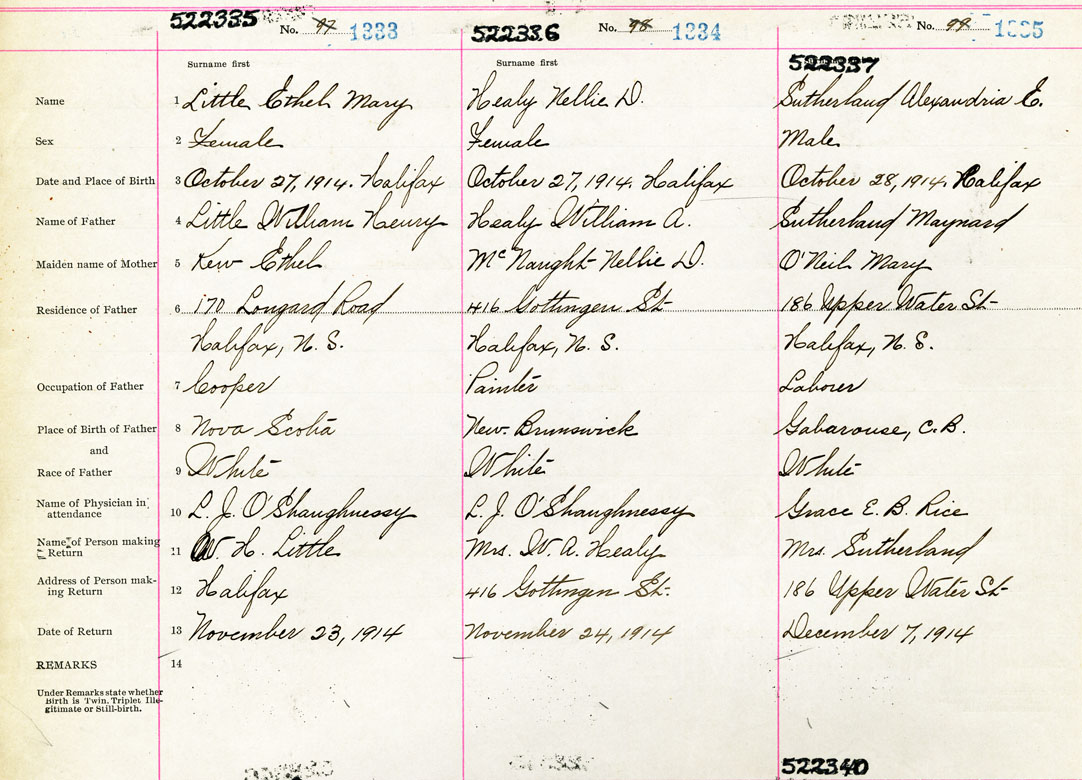 522335 No. 97 1333
522336 No. 98 1334
No. 99 1335
Surname first
Surname first
522337
Name 1 Little Ethel Mary Healy Nellie D. Sutherland Alexandria E.
Sex 2 Female Female Male
Date and Place of Birth 3 October 27, 1914. Halifax October 27, 1914. Halifax October 28, 1914. Halifax
Name of Father 4 Little William Henry Healy William A. Sutherland Maynard
Maiden name of Mother 5 Kew Ethel McNaught Nellie D. O'Neil Mary
Residence of Father 6 170 Longard Road 416 Gottingen St 186 Upper Water St
Halifax, N. S. Halifax, N. S. Halifax, N. S.
Occupation of Father 7 Cooper Painter Laborer
Place of Birth of Father 8 Nova Scotia New Brunswick Gabarouse, C.B.
and
Race of Father 9 White White White
Name of Physician in
attendance 10 L. J. O'Shaughnessy L. J. O'Shaughnessy Grace E. B. Rice
Name of Person making
Return 11 W. H. Little Mrs. W. A. Healy Mrs. Sutherland
Address of Person mak-
ing Return 12 Halifax 416 Gottingen St. 186 Upper Water St
Date of Return 13 November 23, 1914 November 24, 1914 December 7, 1914
REMARKS 14
Under Remarks state whether
Birth is Twin, Triplet Ille-
gitimate or Still-birth.
522340